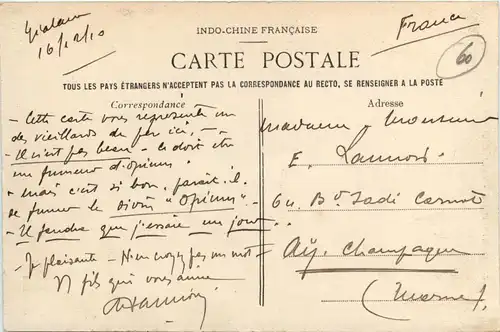 16/12/10
France
60
INDO-CHINE FRANÇAISE
CARTE POSTALE
TOUS LES PAYS ÉTRANGERS N'ACCEPTENT PAS LA CORRESPONDANCE AU RECTO, SE RENSEIGNER A LA POSTE
Correspondance
Adresse
- Cette carte vous représente un
des vieillards de par ici, -
- Il n'est pas beau - ce doit être
un fumeur d'opium
- mais c'est si bon, paraît-il
de fumer le divin "Opium"
- Il faudra que j'essaie un jour..
- Je plaisante - N'en croyez pas un mot -
fils qui vous aime
Madame Monsieur
E.
64 Bd Sadi Carnot
Aÿ. Champagne
(Marne).